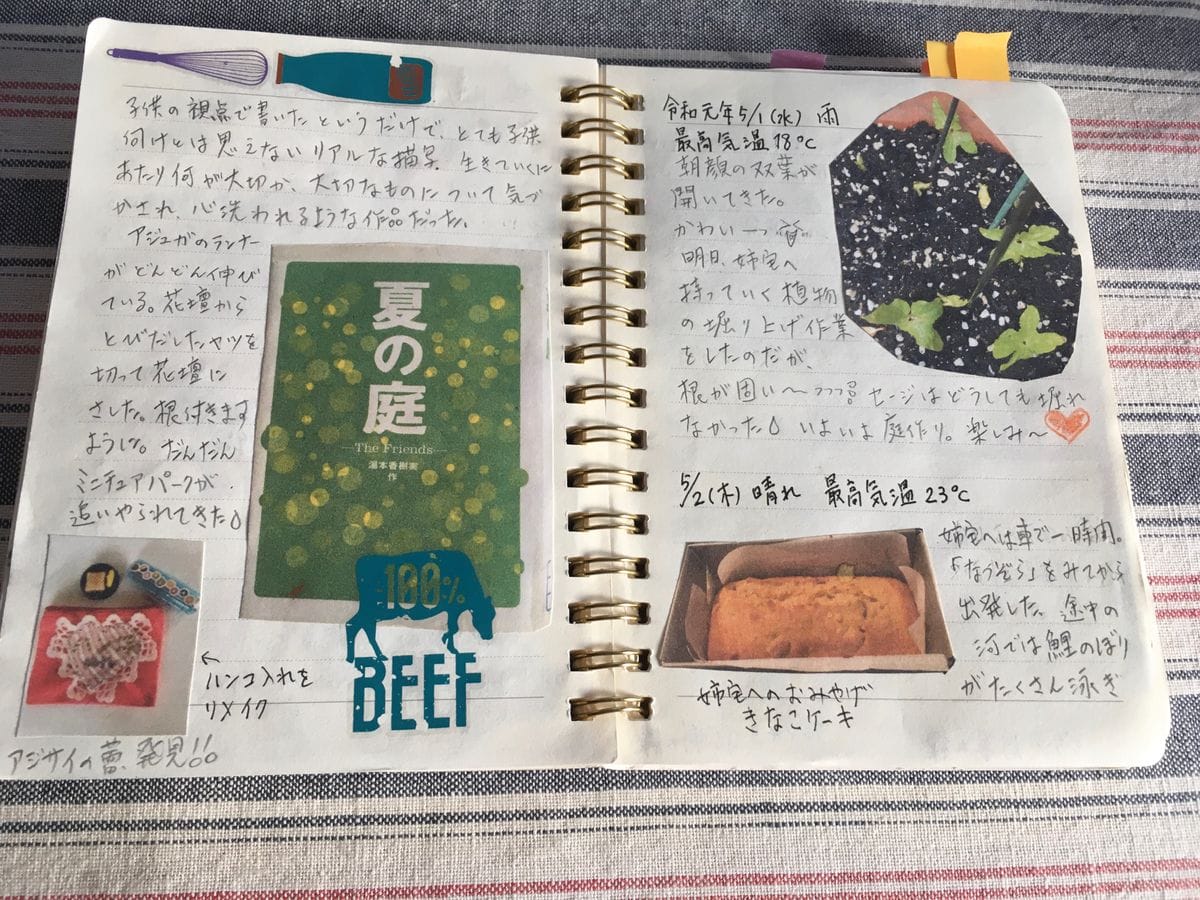 子供の視点で書いたというだけで、とても子供
何けとは思えないリアルな描写。生きていくに
あたり何が大切か、大切なものについて気づ
かされ、心洗われるような作品だった。
アジュガのランナー
がどんどん伸び
ている。花壇から
とびだしたヤツを
切って花壇に
さした。根付きます
ように。だんだん
ミニチュアパークが
追いやられてきた
夏の庭
The Friends
湯本香樹実
作
100%
BEEF
←
ハンコ入れを
リメイク
アジサイの蕾、発見!!
令和元年5/1(水) 雨
最高気温18℃
朝顔の双葉が
開いてきた。
かわいーっ
明日、姉宅へ
持っていく植物
の堀り上げ作業
をしたのだが、
根が固い〜っっっ!! セージはどうしても堀れ
なかった いよいよ庭作り。楽しみ〜
5/2(木) 晴れ 最高気温23℃
姉宅へは車で一時間。
「なつぞら」をみてから
出発した。途中の
河では鯉のぼり
がたくさん泳ぎ
姉宅へのおみやげ
きなこケーキ